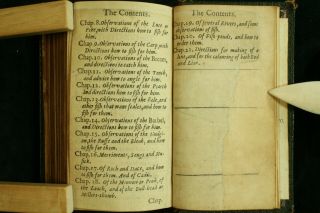 The Contents.
Chap. 8. Observations of the Luce or
Pike, with Directions how to fish for
him.
Chap. 9. Observations of the Carp with
Directions how to fish for him.
Chap. 10. Observations of the Bream,
and directions to catch him.
Chap. 11. Observations of the Tench,
and advice how to angle for him.
Chap. 12. Observations of the Pearch
and directions how to fish for him.
Chap. 13. Observations of the Eele, and
other fish that want scales, and how to
fish for them.
Chap. 14. Observations of the Barbel,
and Directions how to fish for him.
Chap. 15. Observations of the
on, the Ruffe and the Bleak, and how
to fish for them.
Chap. 16. Merriments, Songs and
Chap. 17. Of Roch and Dace, and how
to fish for them. And of Cadis.
Chap. 18. Of the Minnow or Penk, of
the Loach, and of the Bull-head or
Millers-thumb.
Chap.
The Contents.
Chap. 19. Of several Rivers, and some
observations of fish.
Chap. 20. Of Fish-ponds, and how to
order them.
Chap. 21. Directions for making of a
Line, and for the colouring of both Rod
and Line.